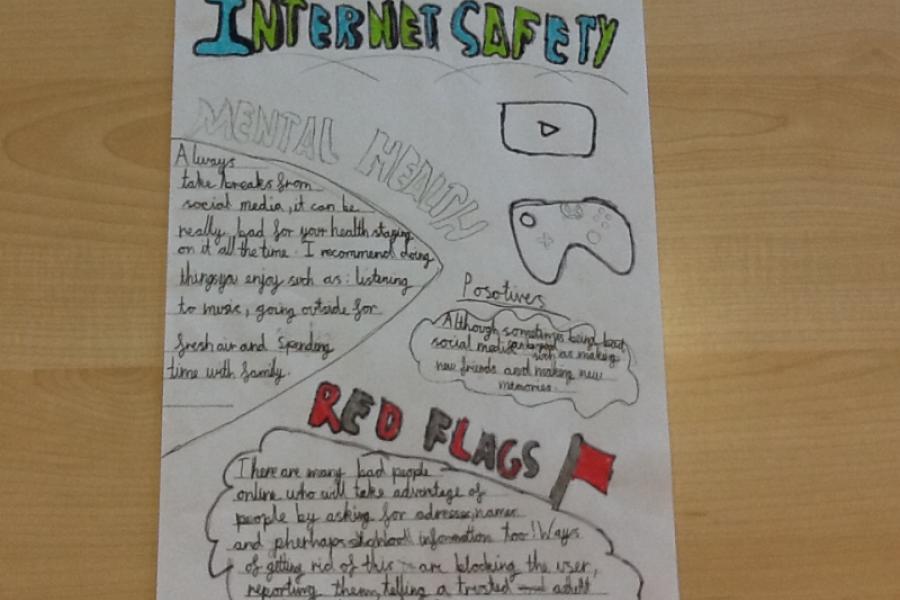 INTERNET SAFETY
MENTAL HEALTH
Always
take breaks from
social media, it can be
really bad for your health staying
on it all the time. I recommend doing
things you enjoy such as: listening
to music, going outside for
fresh air and spending
time with family.
Posotives
Although sometimes being bad
social media can be good
such as making
new friends and making new
memories.
RED FLAGS
There are many bad people
online who will take advantage of
people by asking for adresses, names
and pherhaps school information too! Ways
of getting rid of this are blocking the user,
reporting them, telling a trusted adult